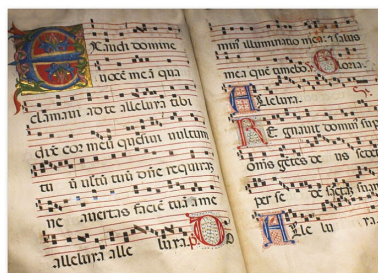 Exaudi domine
vocē meā qua
clamavi ad te alleluia tibi
dixit cor meū quesivi vultum
tu ū vultū tuū dñe requirā
ne avertas faciē tuā a me
alleluia alle luia. D
mini illuminatio mea: et salus
mea quē timebo. Gloria.
Alleluia.
Regnavit dominus sup
omnes gētes deus
per sede sanctam suam
Alle lu